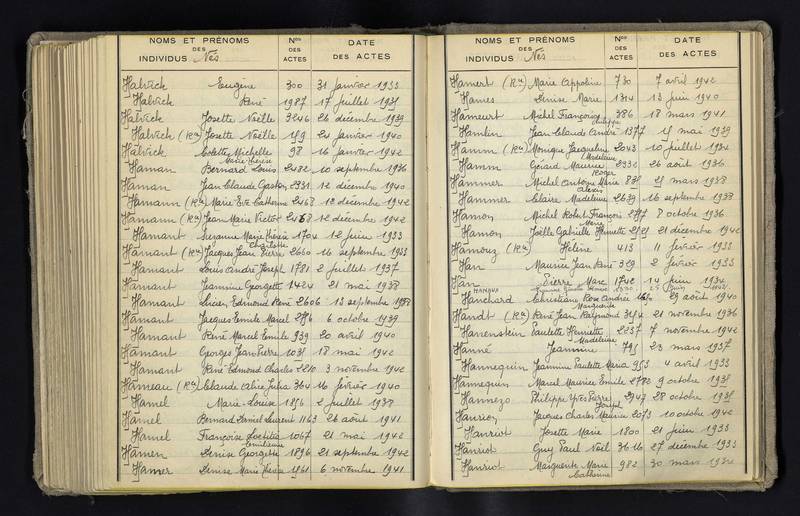 NOMS ET PRÉNOMS DES INDIVIDUS Nés
Nos DES ACTES
DATE DES ACTES
Halvick Eugène 300 31 janvier 1933
Halvick René 1987 17 juillet 1931
Halvick Josette Noëlle 3246 26 décembre 1939
Halvick (Rn) Josette Noëlle 24 janvier 1940
Halvick Colette Michelle 98 16 janvier 1942
Marie Thérèse
Haman Bernard Louis 2482 10 septembre 1936
Haman Jean Claude Gaston 2931 12 décembre 1940
Hamann (Rn) Marie Eve Catherine 2468 12 décembre 1942
Hamann (Rn) Jean Marie Victor 2468 12 décembre 1942
Hamant Suzanne Marie Thérèse 1704 12 juin 1933
Charlotte
Hamant (Rn) Jacques Jean Pierre 2660 16 septembre 1933
Hamant Louis André Joseph 1781 2 juillet 1937
Hamant Jeannine Georgette 1424 21 mai 1938
Hamant Lucien Edmond René 2606 13 septembre 1938
Hamant Jacques Emile Marcel 6 octobre 1939
Hamant René Marcel Emile 939 20 avril 1940
Hamant Georges Jean Pierre 18 mai 1942
Hamant René Edmond Charles 2210 3 novembre 1942
Hameau (Rn) Claude Alice Julia 364 16 février 1940
Hamel Marie-Louise 1856 2 juillet 1938
Hamel Bernard Daniel Laurent 1163 26 août 1941
Hamel Françoise Laetitia 1067 21 mai 1942
Emilienne
Hamen Denise Georgette 1896 21 septembre 1942
Hamer Denise Marie Thérèse 6 novembre 1941
NOMS ET PRÉNOMS DES INDIVIDUS Nés
Nos DES ACTES
DATE DES ACTES
Hamert (Rn) Marie Appoline 730 7 avril 1942
Hames Denise Marie 1314 13 juin 1940
Hameurt Michel François 386 18 mars 1941
Philippe
Hamlin Jean Claude André 1377 mai 1939
Hamm (Rn) Monique Jacqueline 2043 10 juillet 1934
Madeleine
Hamm Gérard Maurice 2932 26 août 1936
Roger
Hammer Michel Antoine Marie mars 1938
Alexis
Hammer Claire Madeleine 2639 16 septembre 1938
Hamon Michel Robert François 8 octobre 1936
Marie
Hamon Joëlle Gabrielle Henriette 21 décembre 1942
Hamouz (Rn) Hélène 413 11 février 1933
Han Maurice Jean René 329 2 février 1933
Han Pierre Marc 1742 14 juin 1934
HANAUX
Hanchard Christian Rose Andrée 29 août 1940
Marguerite
Handt (Rn) René Jean Raymond 21 novembre 1936
Hanenstein Paulette Henriette 2237 7 novembre 1942
Madeleine
Hanne Jeannine 23 mars 1937
Hannequin Jeannine Paulette Maria 953 4 avril 1933
Hannequin Marcel Maurice Emile 2772 9 octobre
Hannezo Philippe Yves Pierre 2947 28 octobre
Joseph
Hanrion Jacques Charles Maurice 2073 10 octobre 1942
Hanriot Josette Marie 1800 21 juin 1933
Hanriot Guy Paul Noël 3616 27 décembre 1933
Hanriot Marguerite Marie 982 30 mars 1934
Catherine